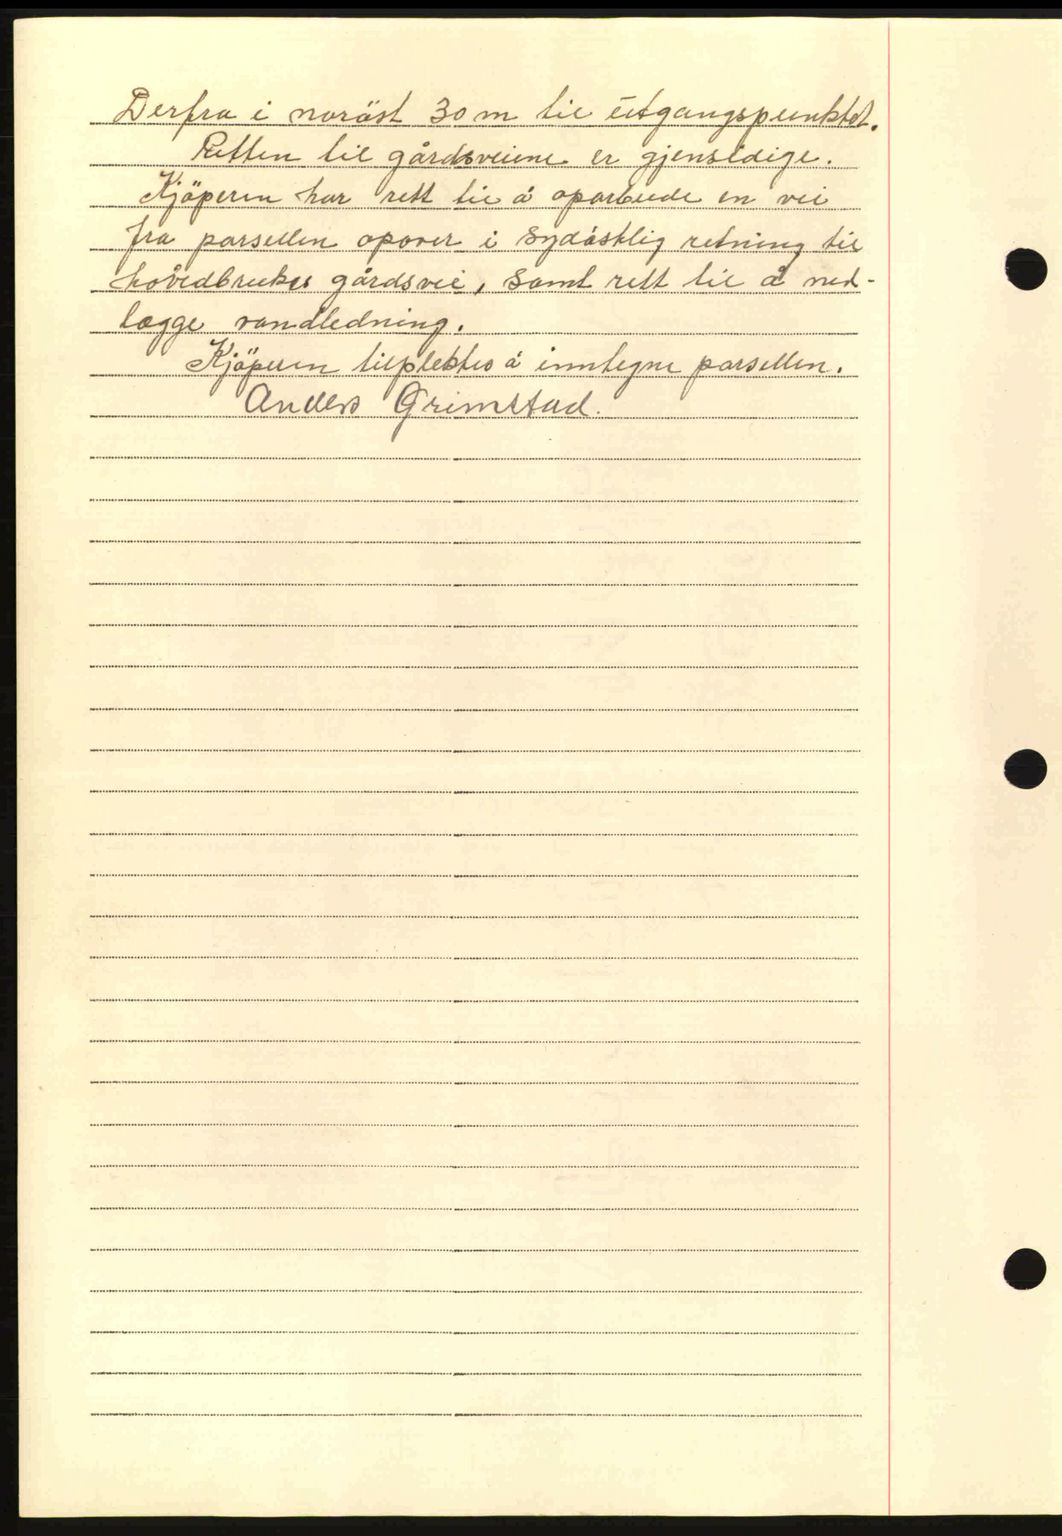 Derfra i noröst 30 m til utgangspunktet.
Retten til gårdsveiene er gjensidige.
Kjöperen har rett til å oparbeide en vei
fra parsellen opover i sydöstlig retning til
hovedbrukes gårdsvei, samt rett til å ned-
lægge vandledning.
Kjöperen tilpliktes å inntegne parsellen.
Anders Grimstad.